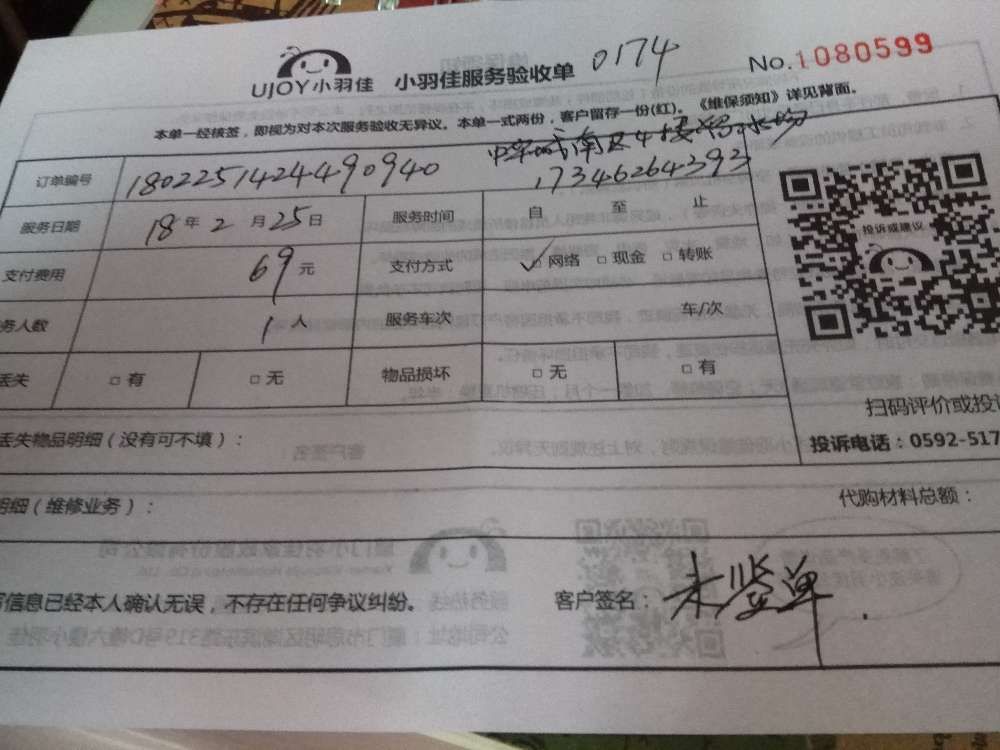 UJOY小羽佳 小羽佳服务验收单 0174 No.1080599
本单一经核签，即视为对本次服务验收无异议。本单一式两份，客户留存一份(红)。《维保须知》详见背面。
南区4楼
订单编号 1802251424490940 17346264393
服务日期 18年2月25日 服务时间 自 至 止
支付费用 69元 支付方式 ✓网络 □现金 □转账
务人数 1人 服务车次 车/次
丢失 □有 □无 物品损坏 □无 □有
投诉或建议
扫码评价或投
投诉电话：0592-517
丢失物品明细（没有可不填）：
明细（维修业务）： 代购材料总额：
信息已经本人确认无误，不存在任何争议纠纷。 客户签名：未签单